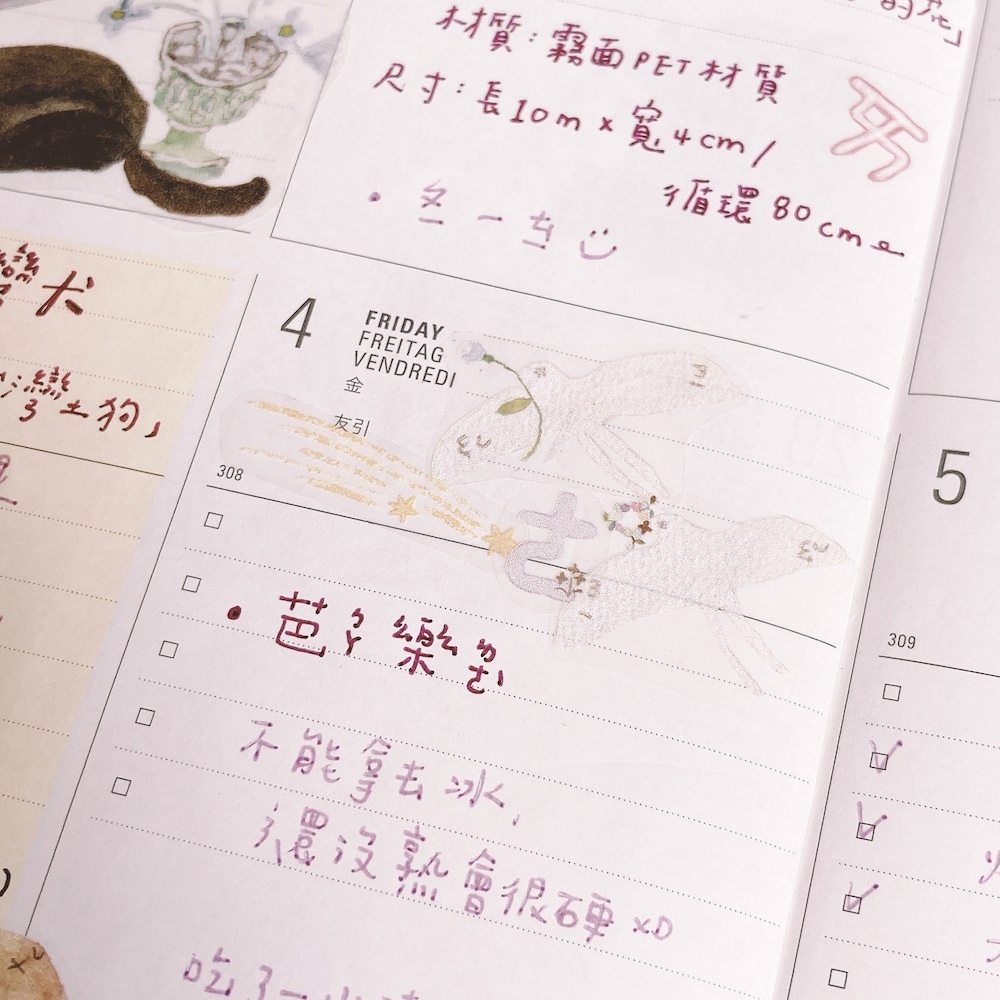 的花」
材質：霧面PET材質
尺寸：長10m x 寬4cm/
循環80cm
冬一去
犬
土狗」
4
FRIDAY
FREITAG
VENDREDI
金
友引
308
• 芭樂
不能拿去冰，
還沒熟會很硬 xD
吃了一
5
309